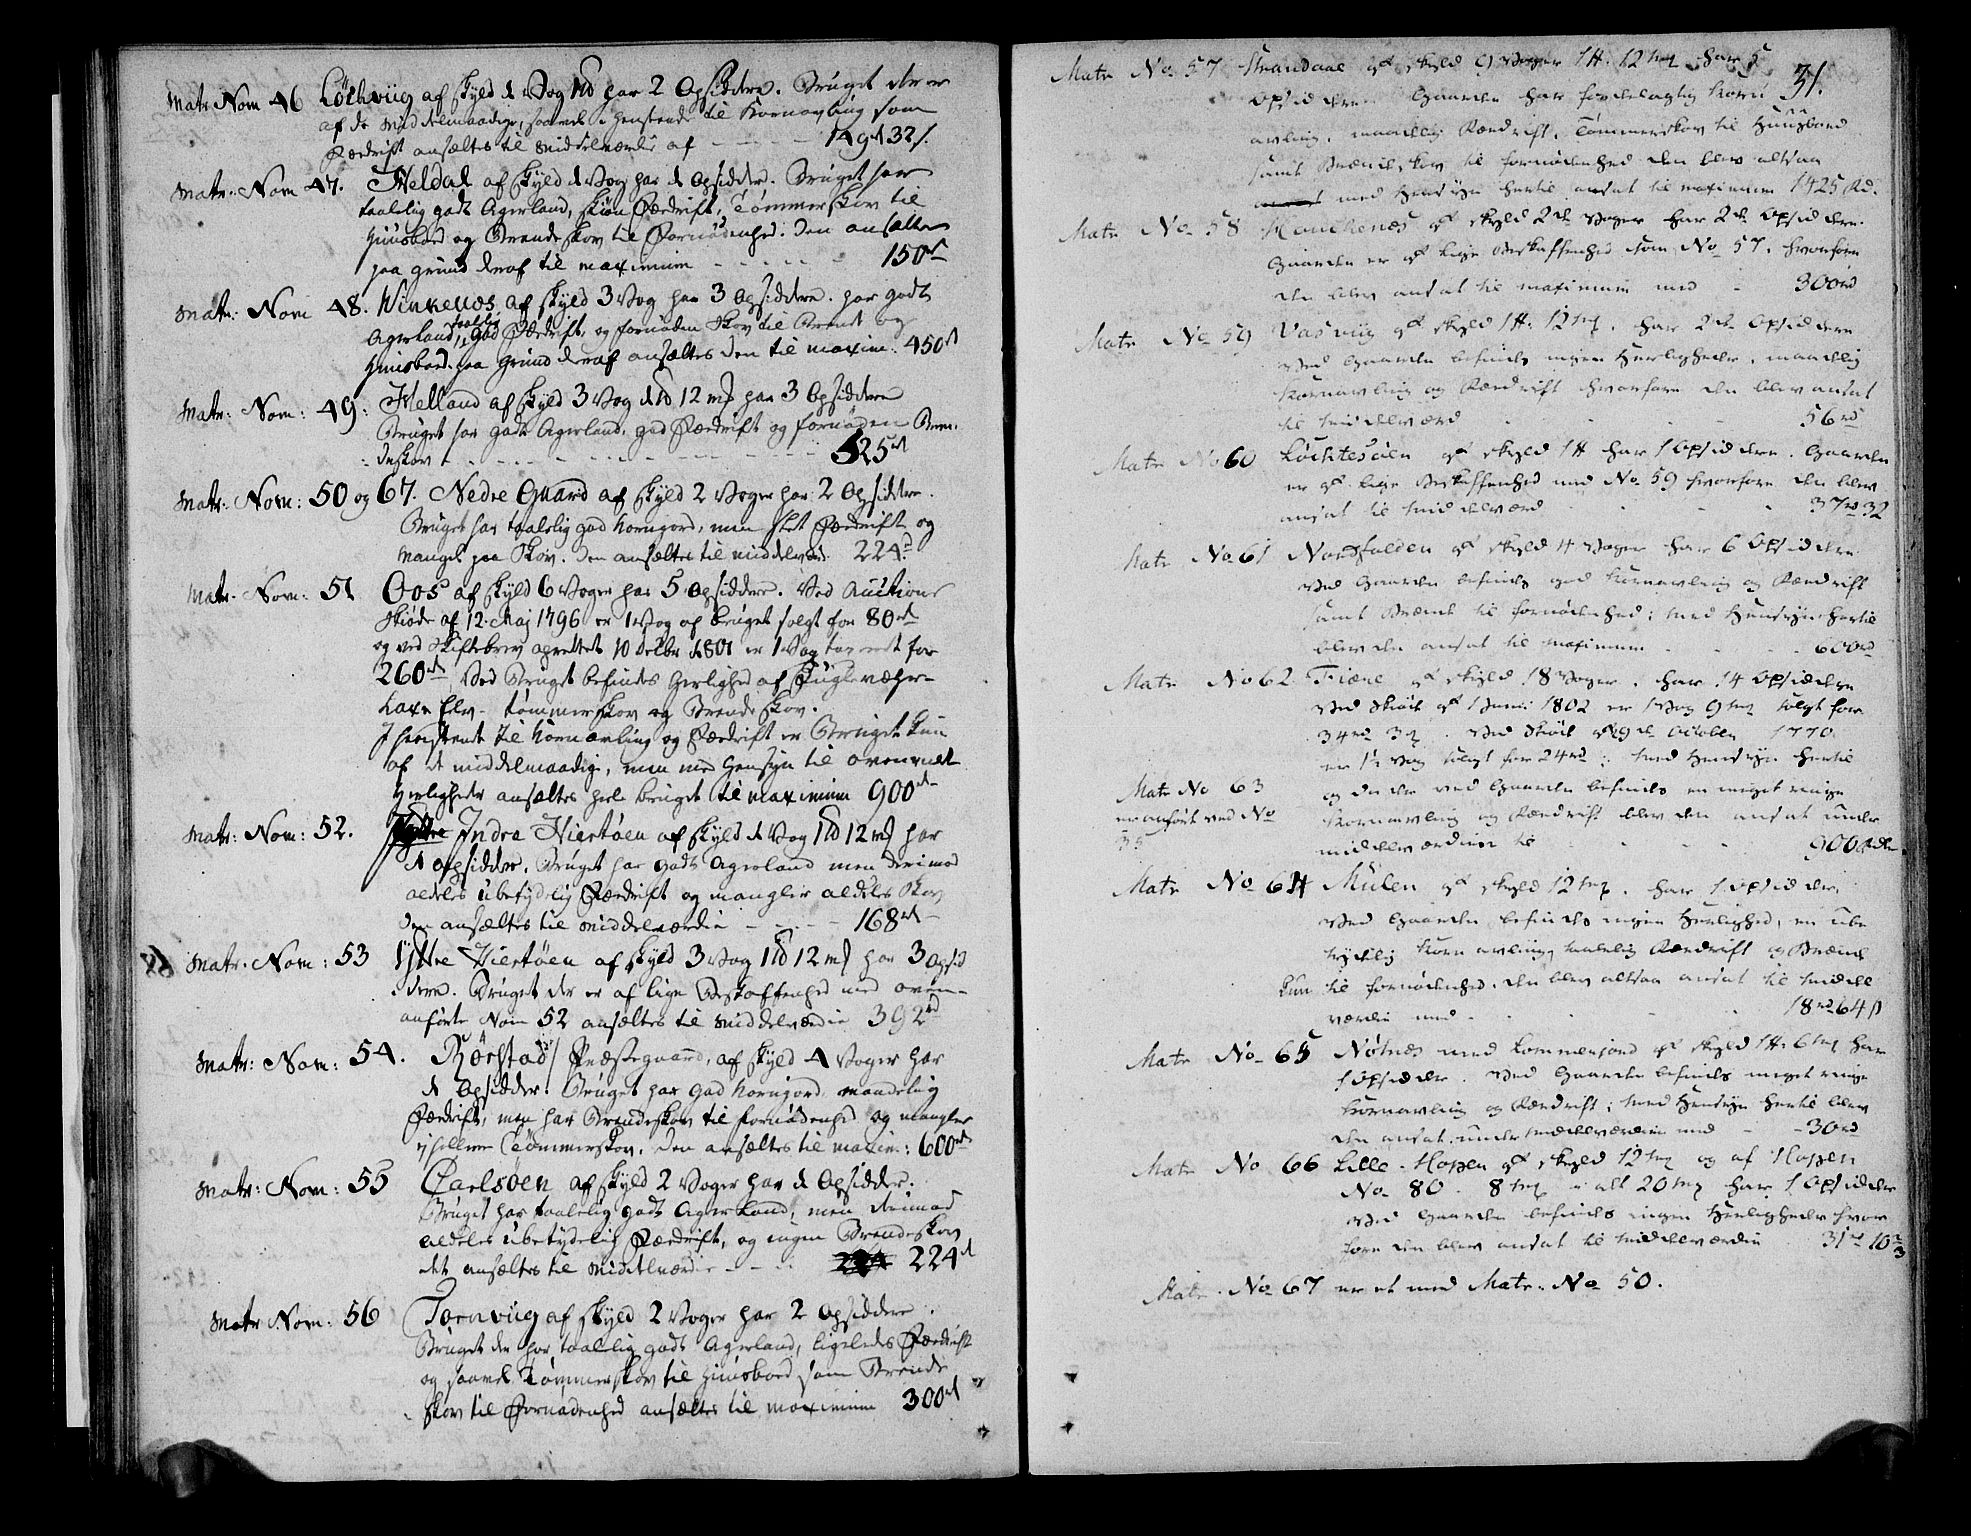 Matr Nom 46 Löchviig af Skyld 1 Vog 1 ℔ har 2 Opsiddere. Bruget der er
af de Middelmaadige, saavel i Henseende til Kornavling som
Fædrift ansættes til Middelværdie af - - - 149 rd 32 s.
Matr. Nom 47. Heldal af Skyld 1 Vog har 1 Opsidder. Bruget har
taalelig godt Agerland, skiøn Fædrift, Tømmerskov til
Huusboed og Brændeskov til Fornødenhed. den ansættes
paa grund deraf til maximum - - - - 150 rd
Matr. Nom 48. Vinkenæs af Skyld 3 Vog har 3 Opsiddere. har godt
Agerland, taalelig god Fædrift, og fornøden Skov til Brændt og
Huusboed. paa grund deraf ansættes den til maxim: 450 rd
Matr: Nom: 49: Helland af Skyld 3 Vog 1 ℔ 12 mk har 3 Opsiddere
Bruget har godt Agerland, god Fædrift og fornøden Bræn-
deskov - - - - - - 525 rd
Matr. Nom: 50 og 67. Nedre Gaard af Skyld 2 Voger har 2 Opsiddere.
Bruget har taalelig god Kornjord, men slet Fædrift og
Mangel paa Skov. den ansættes til Middelværdi 224 rd
Matr. Nom: 51 Oos af Skyld 6 Voger har 5 Opsiddere. Ved Auctions
Skiøde af 12. Maj 1796 er 1 Vog af Bruget solgt for 80 rd
og ved Skiftebrev oprettet 10 Decbr 1801 er 1 Vog taxeret for
260 rd Ved Bruget befindes Herlighed af Fuglevæhr-
Laxe Elv - Tømmerskov og Brændeskov.
I Henseende til Kornavling og Fædrift er Bruget kun
af de middelmaadige, men med Hensyn til ovenmeldte
Herligheder ansættes hele bruget til maximum 900 rd
Matr: Nom: 52. Indre Hiertøen af Skyld 1 Vog 1 ℔ 12 mk har
1 opsidder. Bruget har godt Agerland men derimod
aldeles ubetydelig Fædrift og mangler aldeles Skov
den ansættes til Middelværdie - - - - 168 rd
Matr. Nom: 53 Yttre Hiertøen af Skyld 3 Vog 1 ℔ 12 mk har 3 Opsid
dere. Bruget der er af lige Beskaffenhed med oven-
anførte Nom 52 ansættes til Middelværdie 392 rd
Matr: Nom: 54. Rörstad/ Præstegaard, af Skyld 4 Voger har
1 Opsidder. Bruget har god Kornjord, maadelig
Fædrift, men har Brændeskov til fornødenhed og mangler
Tømmerskov. den ansættes til maxim: 600 rd
Matr: Nom: 55 Carlsøen af Skyld 2 Voger har 1 Opsidder.
Bruget har taalelig godt Agerland, men derimod
aldeles ubetydelig Fædrift, og ingen Brændeskov
det ansættes til Middelværdie - - - 224 rd
Matr Nom: 56 Tornviig af Skyld 2 Voger har 2 Opsiddere.
Bruget der har taalelig godt Agerland, ligeledes Fædrift
og saavel Tømmerskov til Huusboed som Brænde
skov til Fornødenhed ansættes til maximum 300 rd
31.
Matr No 57 Strandaae af skyld 9 Voger 1 ℔. 12 mk har 5
Opsiddere. Gaarden har fordelagtig Korn
avling, maadelig Fædrift, Tømmerskov til Huusboed
samt Brændeskov til fornødenhed den blev altsaa
med Hensyn hertil ansat til maximum 1425 Rd.
Matr No 58 Munckenæs af skyld 2de Voger har 2de Opsiddere.
Gaarden er af lige Beskaffenhed som No 57. hvorfore
den blev ansat til maximum med - 300 rd
Matr No 59 Vasviig af skyld 1 ℔. 12 mk. har 2de Opsiddere
Ved Gaarden befindes ingen Herligheder, maadelig
Kornavling og Fædrift hvorfore den blev ansat
til Middelværd - - - 56 rd
Matr No 60 Löchtesøen af skyld 1 ℔ har 1 Opsidder. Gaarden
er af lige Beskaffenhed med No 59 hvorfore den blev
ansat til Middelværd - - - 37 rd 32
Matr No 61 Nordfolden af skyld 4 Voger har 6 Opsiddere.
Ved Gaarden befindes god Kornavling og Fædrift
samt Brænde til fornødenhed; med Hensyn hertil
blev den ansat til maximum - - - 600 rd
Matr No 62 Fiære af skyld 18 Voger. har 14 Opsiddere
Ved Skiøde af 1 Juni 1802 er 1 Vog 9 mk solgt for
34 rd 32. Ved Skiøde af 29de October 1770
er 1½ Vog solgt for 24 rd; med Hensyn hertil
og da der ved Gaarden befindes en meget ringe
Kornavling og Fædrift blev den ansat under
middelværdien til - - - 900 Rdlr
Matr No 63
er anført ved No
35
Matr No 64 Mulen af skyld 12 mk. har 1 Opsidder.
Ved Gaarden befindes ingen Herlighed, en ube
tydelig Kornavling, taalelig Fædrift og Brænde
kun til fornødenhed. den blev altsaa ansat til Middel
værdie med - - - - 18 rd 64 s
Matr No 65 Nøtnæs med Lommerjord af skyld 1 ℔. 6 mk har
1 Opsidder. Ved Gaarden befindes meget ringe
Kornavling og Fædrift; med Hensyn hertil blev
den ansat under Middelværdien med - - 30 rd
Matr No 66 Lille Mopen af skyld 12 mk og af Mopen
No 80. 8 mk - alt 20 mk har 1 Opsidder
Ved Gaarden befindes ingen Herligheder hvor
fore den blev ansat til Middelværdien 31 rd 10 2/3
Matr. No 67 er et med Matr. No 50.